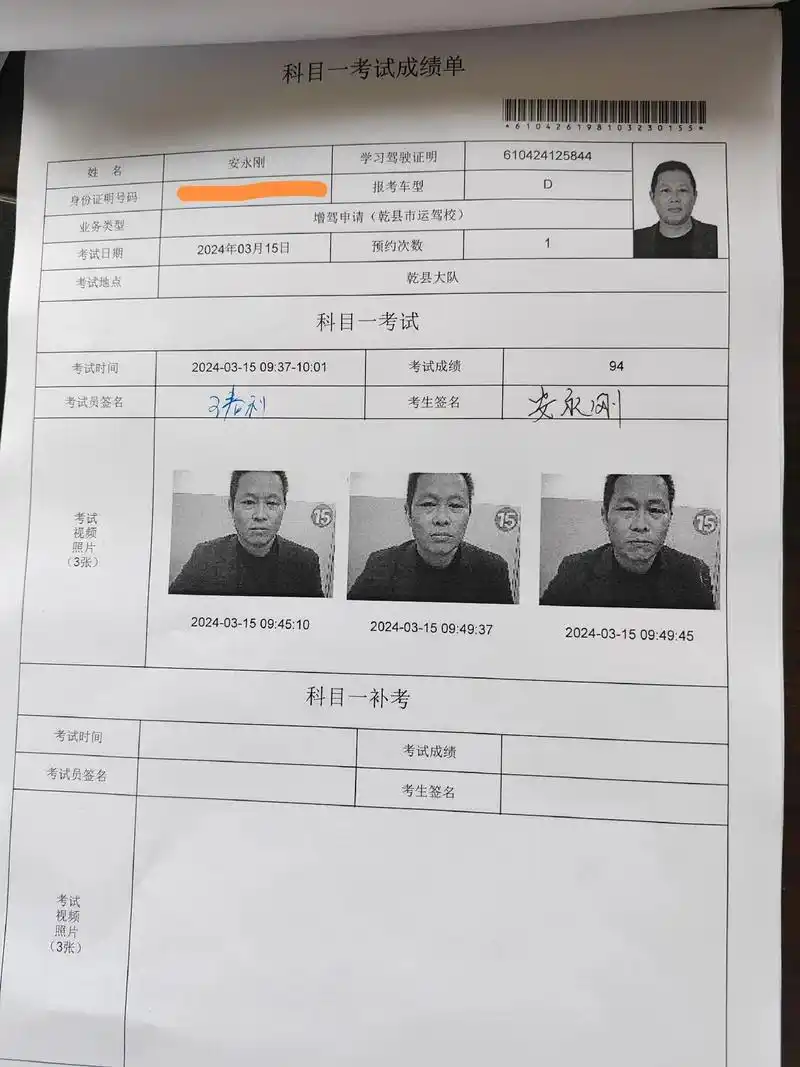 科目一考试成绩单
*610426198103230155*
姓 名 安永刚 学习驾驶证明 610424125844
身份证明号码 报考车型 D
业务类型 增驾申请（乾县市运驾校）
考试日期 2024年03月15日 预约次数 1
考试地点 乾县大队
科目一考试
考试时间 2024-03-15 09:37-10:01 考试成绩 94
考试员签名 考生签名 安永刚
考试
视频
照片
（3张）
15 15 15
2024-03-15 09:45:10 2024-03-15 09:49:37 2024-03-15 09:49:45
科目一补考
考试时间 考试成绩
考试员签名 考生签名
考试
视频
照片
（3张）